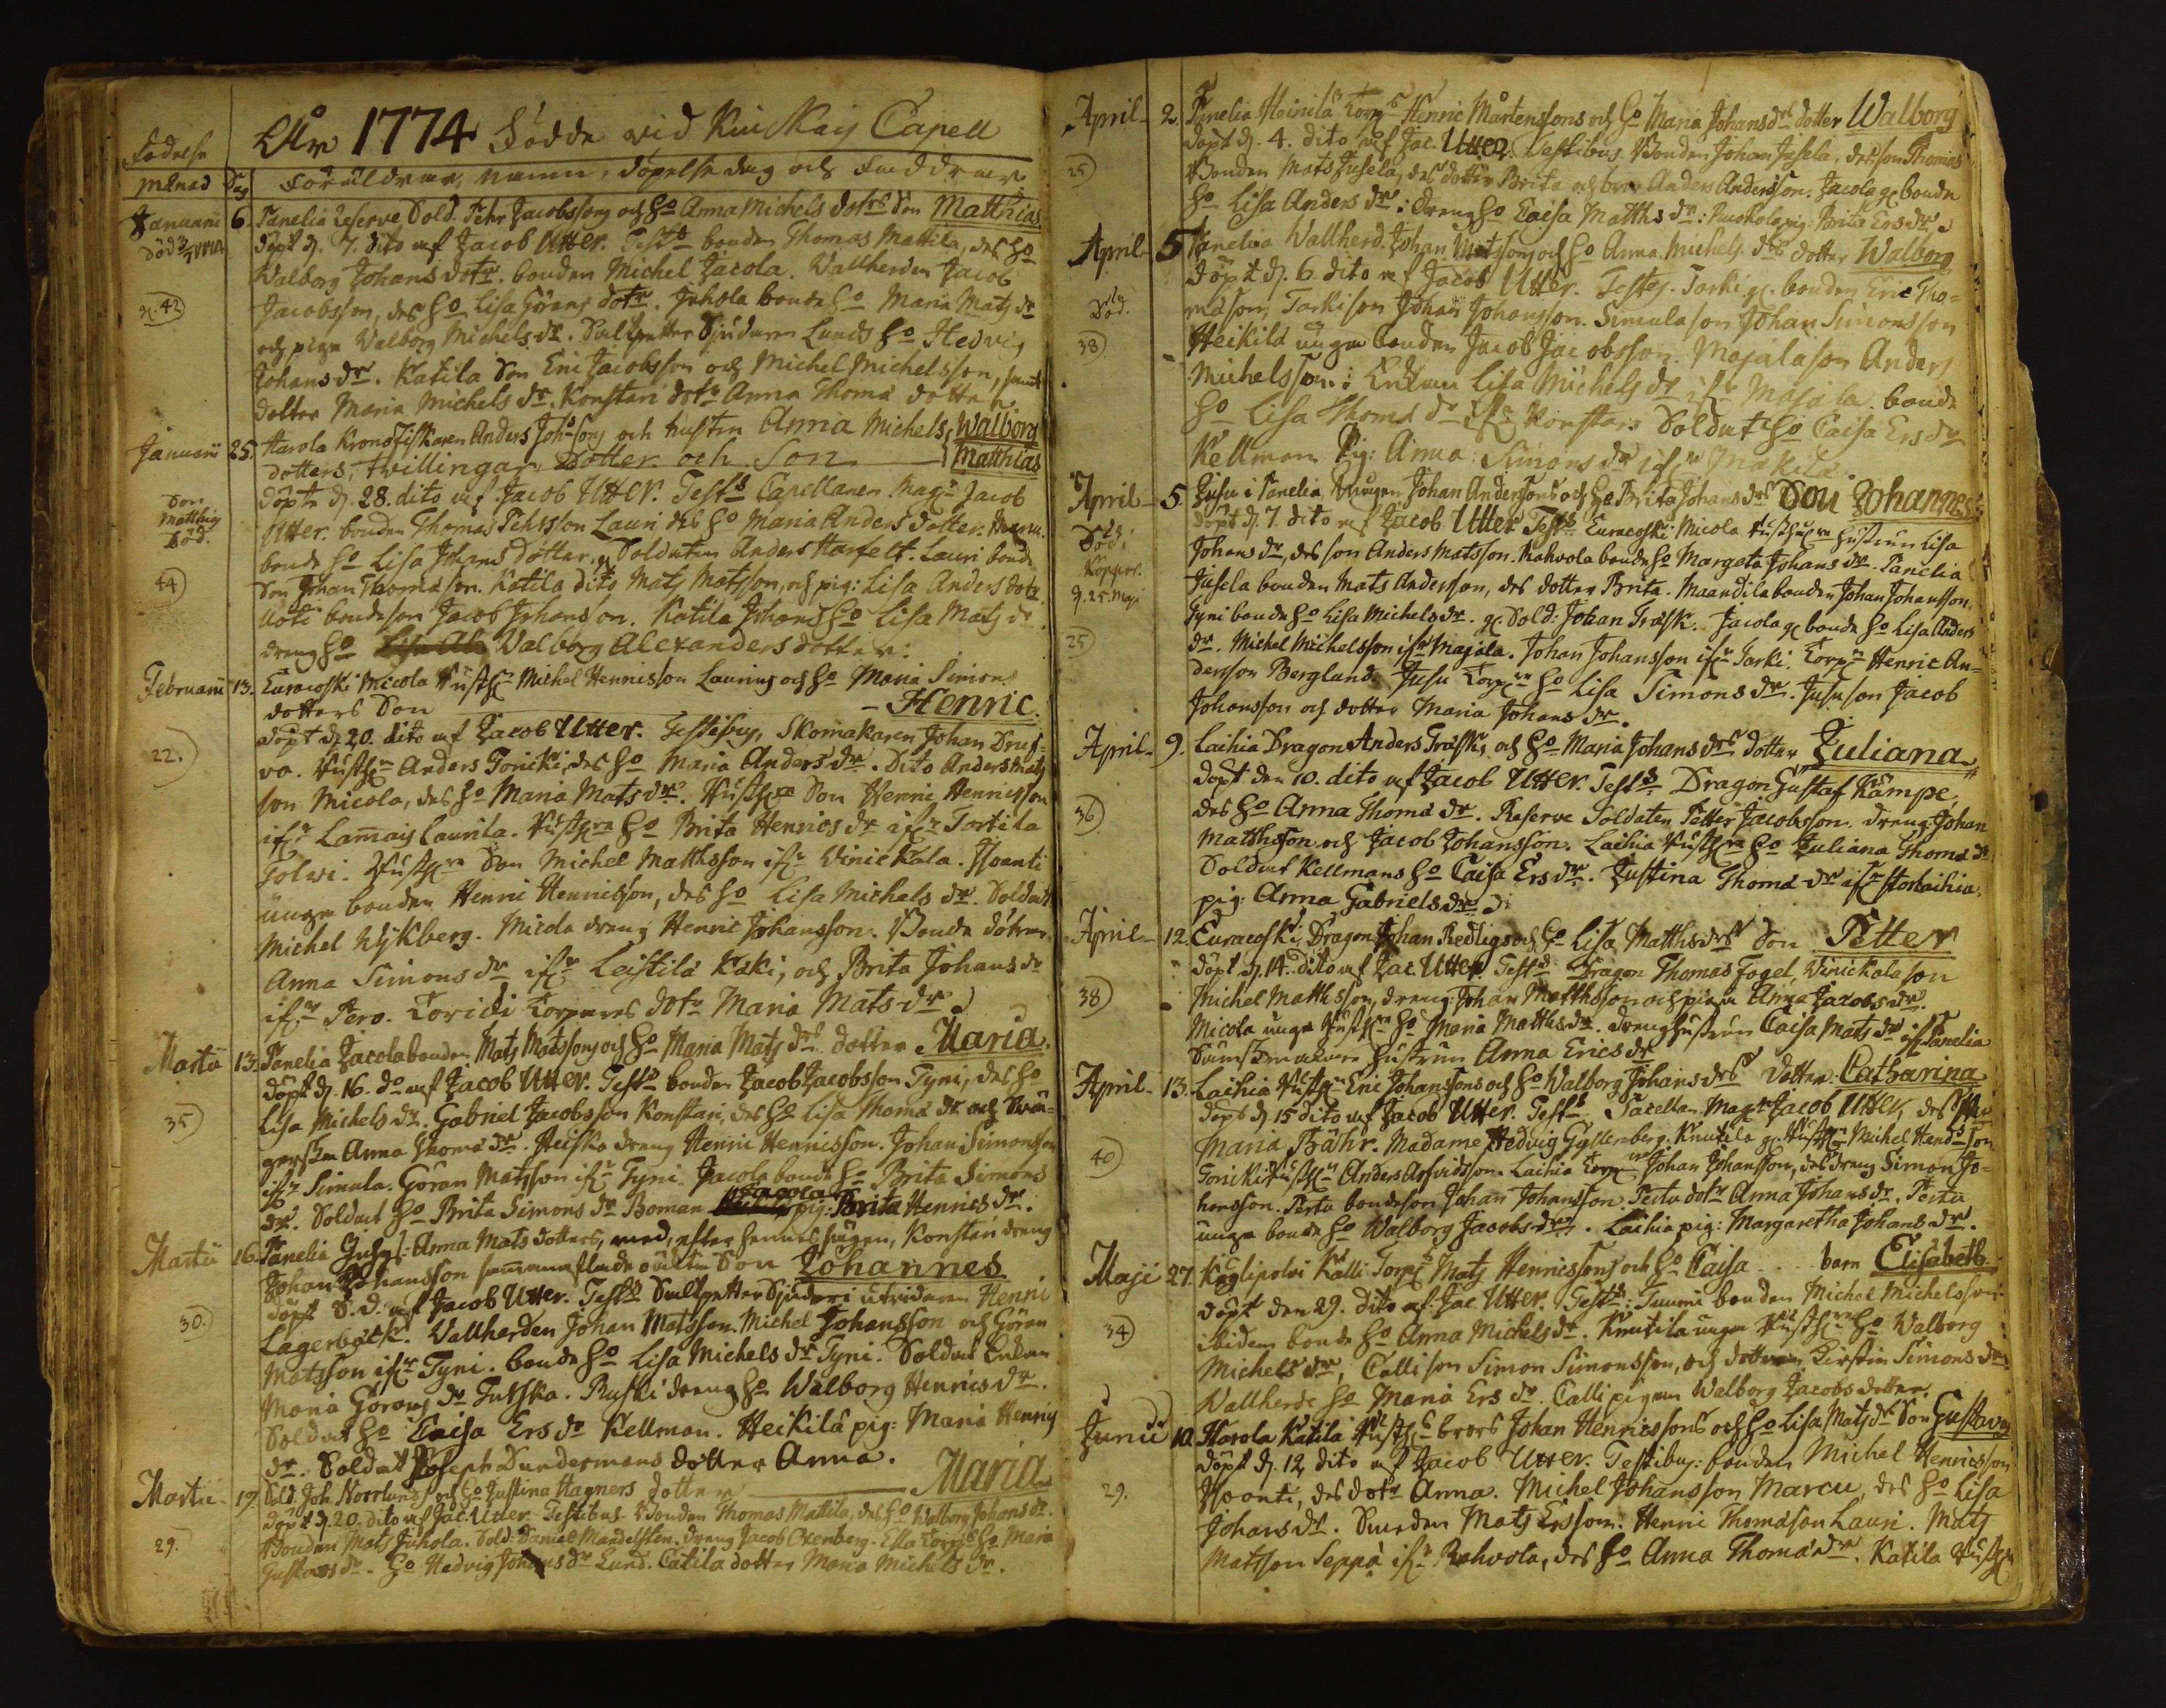 År 1774 Födde wid Kiuckais Capell
Födelse
månad Dag Föräldrar, namn, döpelse dag och Faddrar
Januarii 6. Panelia Reserve Sold. Pehr Jacobssons och h:o Anna Michels dotrs Son Matthias
döpt d. 7. dito af Jacob Utter. Test:s bonden Thomas Mattila, des h:o
Död
Walborg Johans dotr. bonden Michel Jacola. Wallherden Jacob
g. 42
Jacobsson, des h:o Lisa Görans dotr. Juhola bonde h:o Maria Mats dr
och pigan Walborg Michels dr. Saltpetter Sjudaren Lunds h:o Hedvig
Johans dr. Katila Son Eric Jacobsson och Michel Michelsson, samt
dotter Maria Michels dr. Konstari dotr Anna Thomæ dotter
Januarii 25. Harola Kronofiskaren Anders Johssons och hustru Anna Michels Walborg
dotters, twillingar Dotter och Son Matthias
döpte d. 28. dito af Jacob Utter. Test:s Capellanen Mag:r Jacob
Son
Matthias
Död.
Utter. bonden Thomas Pehrsson Lauri des h:o Maria Anders dotter.
bonde h:o Lisa Johans dotter, Soldaten Anders Harfelt. Lauri bonde
44
Son Johan Thomasson. Katila dito Mats Matsson, och pig: Lisa Anders dotr.
Uoti bondeson Jacob Johansson. Katila Johans h:o Lisa Mats dr
dreng h:o Walborg Alexanders dotter.
Februarii 13. Euracoski Micola Michel Henricsson Laurins och h:o Maria Simons
dotters Son Henric.
döpt d. 20. dito af Jacob Utter. Testibus, Skomakaren Johan
22.
Anders Toricki, des h:o Maria Anders dr. Dito Anders Mats
son Micola, des h:o Maria Mats dr. Son Henric Henricsson
ifr: Lamais Laurila. h:o Brita Henrics dr ifr: Tortila
Tolwi. Son Michel Matthsson ifr: Winickala. Hoanti
unge bonden Henric Henricsson, des h:o Lisa Michels dr. Soldat
Michel Nykberg. Micola dreng Henric Johansson. Bonde dotter
Anna Simons dr ifr: Leistila Käki, och Brita Johans dr
ifr: Pero. Coridi Torpares dotr Maria Mats dr
Martii 13. Panelia Jacola bonden Mats Matssons och h:o Maria Mats drs dotter Maria.
döpt d. 16. do af Jacob Utter. Test:s bonden Jacob Jacobsson Tyni, des h:o
35
Lisa Michels dr. Gabriel Jacobsson Konstari, des h:o Lisa Thomæ dr och Swä-
gerskan Anna Thomæ dr. Heiska dreng Henric Henricsson. Johan Simonsson
ifr: Simula. Göran Matsson ifr: Tyni. Jacola bonde h:o Brita Simons
dr. Soldat h:o Brita Simons dr Boman Jacola pig: Brita Henrics dr.
Martii 16. Panelia Anna Mats dotters, med, efter hennes sägen, Konstari dreng
Johan Johansson sammanaflade oäkta Son Johannes
döpt S. D. af Jacob Utter. Test:s Saltpetter Sjuderi utridaren Henric
30.
Lagerbäck. Wallherden Johan Matsson. Michel Johansson och Göran
Matsson ifr: Tyni. bonde h:o Lisa Michels dr Tyni. Soldat Enkan
Maria Görans dr Tutska. Ruski dreng h:o Walborg Henrics dr.
Soldat h:o Caisa Ers dr Kellman. Heikilä pig: Maria Henrics
dr. Soldat Joseph Dundermans dotter Anna.
Martii 19. Sold. Joh. Norrlunds och h:o Justina Hagners dotter Maria
döpt d. 20. dito af Jac: Utter. Testibus. Bonden Thomas Mattila, des h:o Walborg Johans dr.
29.
Bonden Mats Juhola. Sold: Daniel Mandelsten. dreng Jacob Oxenberg. Ella Torp:s h:o Maria
Gustavs dr. h:o Hedvig Johans dr Lund. Catila dotter Maria Michels dr.
April 2. Panelia Heinilä Torp:s Henric Mårtenssons och h:o Maria Johans drs dotter Walborg
döpt d. 4. dito af Jac. Utter. Testibus. Bonden Johan Jusela, des son Thomas
25
Bonden Mats Jusela, des dotter Brita och bror Anders Andersson. Jacola g. bonde
h:o Lisa Anders dr: Dreng h:o Caisa Matths dr: pig: Brita Ers dr
April 5. Panelia Wallherd. Johan Matssons och h:o Anna Michels drs dotter Walborg
döpt d. 6. dito af Jacob Utter. Testes. Tarki g. bonden Eric Tho-
Död.
masson, Tarkison Johan Johansson. Simulason Johan Simonsson
38
Heikilä unge bonden Jacob Jacobsson. Majalason Anders
Michelsson: Enkan Lisa Michels dr ifr: Majala bonde
h:o Lisa Thomæ dr ifr: Konstars Soldat h:o Caisa Ers dr
Kellman. Pig: Anna Simons dr ifr: Mäkilä.
April 5. Jusu i Panelia Drängen Johan Anderssons och h:o Brita Johans drs Son Johannes
döpt d. 7. dito af Jacob Utter Test:s Euracoski Micola hustrun Lisa
Död i
Koppor.
d. 25. Maji
Johans dr, des son Anders Matsson. Rahvola bonde h:o Margeta Johans dr. Panelia
Jusela bonden Mats Andersson, des dotter Brita. Maandila bonden Johan Johansson.
Tyni bonde h:o Lisa Michels dr. g. Sold: Johan Träsk. Jacola g. bonde h:o Lisa Anders
25
dr. Michel Michelsson ifr: Majala. Johan Johansson ifr: Tarki. Torp:n Henric An-
dersson Berglund. Jusu h:o Lisa Simons dr. Jususon Jacob
Johansson och dotter Maria Johans dr.
April 9. Laihia Dragon Anders Träsks och h:o Maria Johans drs dotter Juliana
döpt den 10. dito af Jacob Utter. Test:s Dragon Gustaf Kämpe,
36
des h:o Anna Thomæ dr. Reserve Soldaten Petter Jacobsson. dreng: Johan
Matthsson och Jacob Johansson. Laihia h:o Juliana Thomæ dr
Soldat Kellmans h:o Caisa Ers dr. Justina Thomæ dr ifr: storlaihia.
pig: Anna Gabriels dr
April 12. Euracoski Dragon Johan Redligs och h:o Lisa Matths drs Son Petter
döpt d. 14. dito af Jac. Utter. Test:s Dragon Thomas Fogel, Winickala son
38
Michel Matthsson, dreng: Johan Matthsson och pigan Anna Jacobs dr.
Micola unge h:o Maria Matths dr. dreng hustrun Caisa Mats dr ifr: Panelia
hustrun Anna Erics dr
April 13. Laihia Eric Johanssons och h:o Walborg Johans drs dotter Catharina
döpt d. 15 dito af Jacob Utter. Test:s Capellan Mag:r Jacob Utter, des
40
Maria Bähr. Madame Hedvig Gyllenberg. Knutila g. Michel Hendsson
Toricki Anders Arfvidsson. Laihia Torp Johan Johansson, des dreng Simon Jo-
hansson. Perta bondeson Johan Johansson. Perta dotr Anna Johans dr. Perta
unge bonde h:o Walborg Jacobs dr. Laihia pig: Margaretha Johans dr.
Maji 27. Kalli Torp:s Mats Henricssons och h:o Caisa .... barn Elisabeth.
döpt den 29. dito af Jac. Utter. Test:s: Tuumi bonden Michel Michelsson
34
ibidem bonde h:o Anna Michels dr. Knutila unge h:o Walborg
Michels dr; Calli son Simon Simonsson, och dottren Kirstin Simons dr
Wallherde h:o Maria Ers dr. Calli pigan Walborg Jacobs dotter.
Junii 10. Harola Katila brors Johan Henricssons och h:o Lisa Mats drs Son Gustavus
döpt d. 12 dito af Jacob Utter. Testibus: bonden Michel Henricsson
29.
Hoanti, des dotr Anna. Michel Johansson Marcu, des h:o Lisa
Johans dr. Smeden Mats Ersson. Henric Thomasson Lauri. Mats
Matsson Seppä ifr: Rahvola, des h:o Anna Thomæ dr. Katila